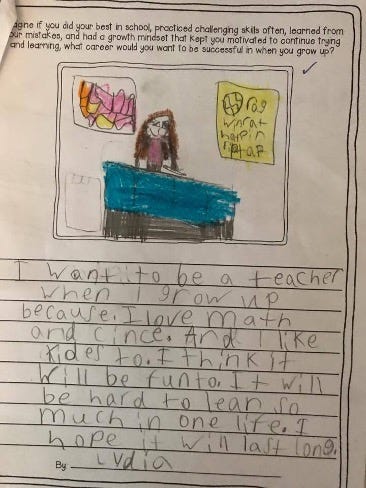 agne if you did your best in school, practiced challenging skills often, learned from
our mistakes, and had a growth mindset that kept you motivated to continue trying
and learning, what career would you want to be successful in when you grow up?
I want to be a teacher
when I grow up
because. I love math
and cince. And I like
kides to. I think it
will be fun to. It will
be hard to lean so
much in one life. I
hope it will last long.
By Lydia